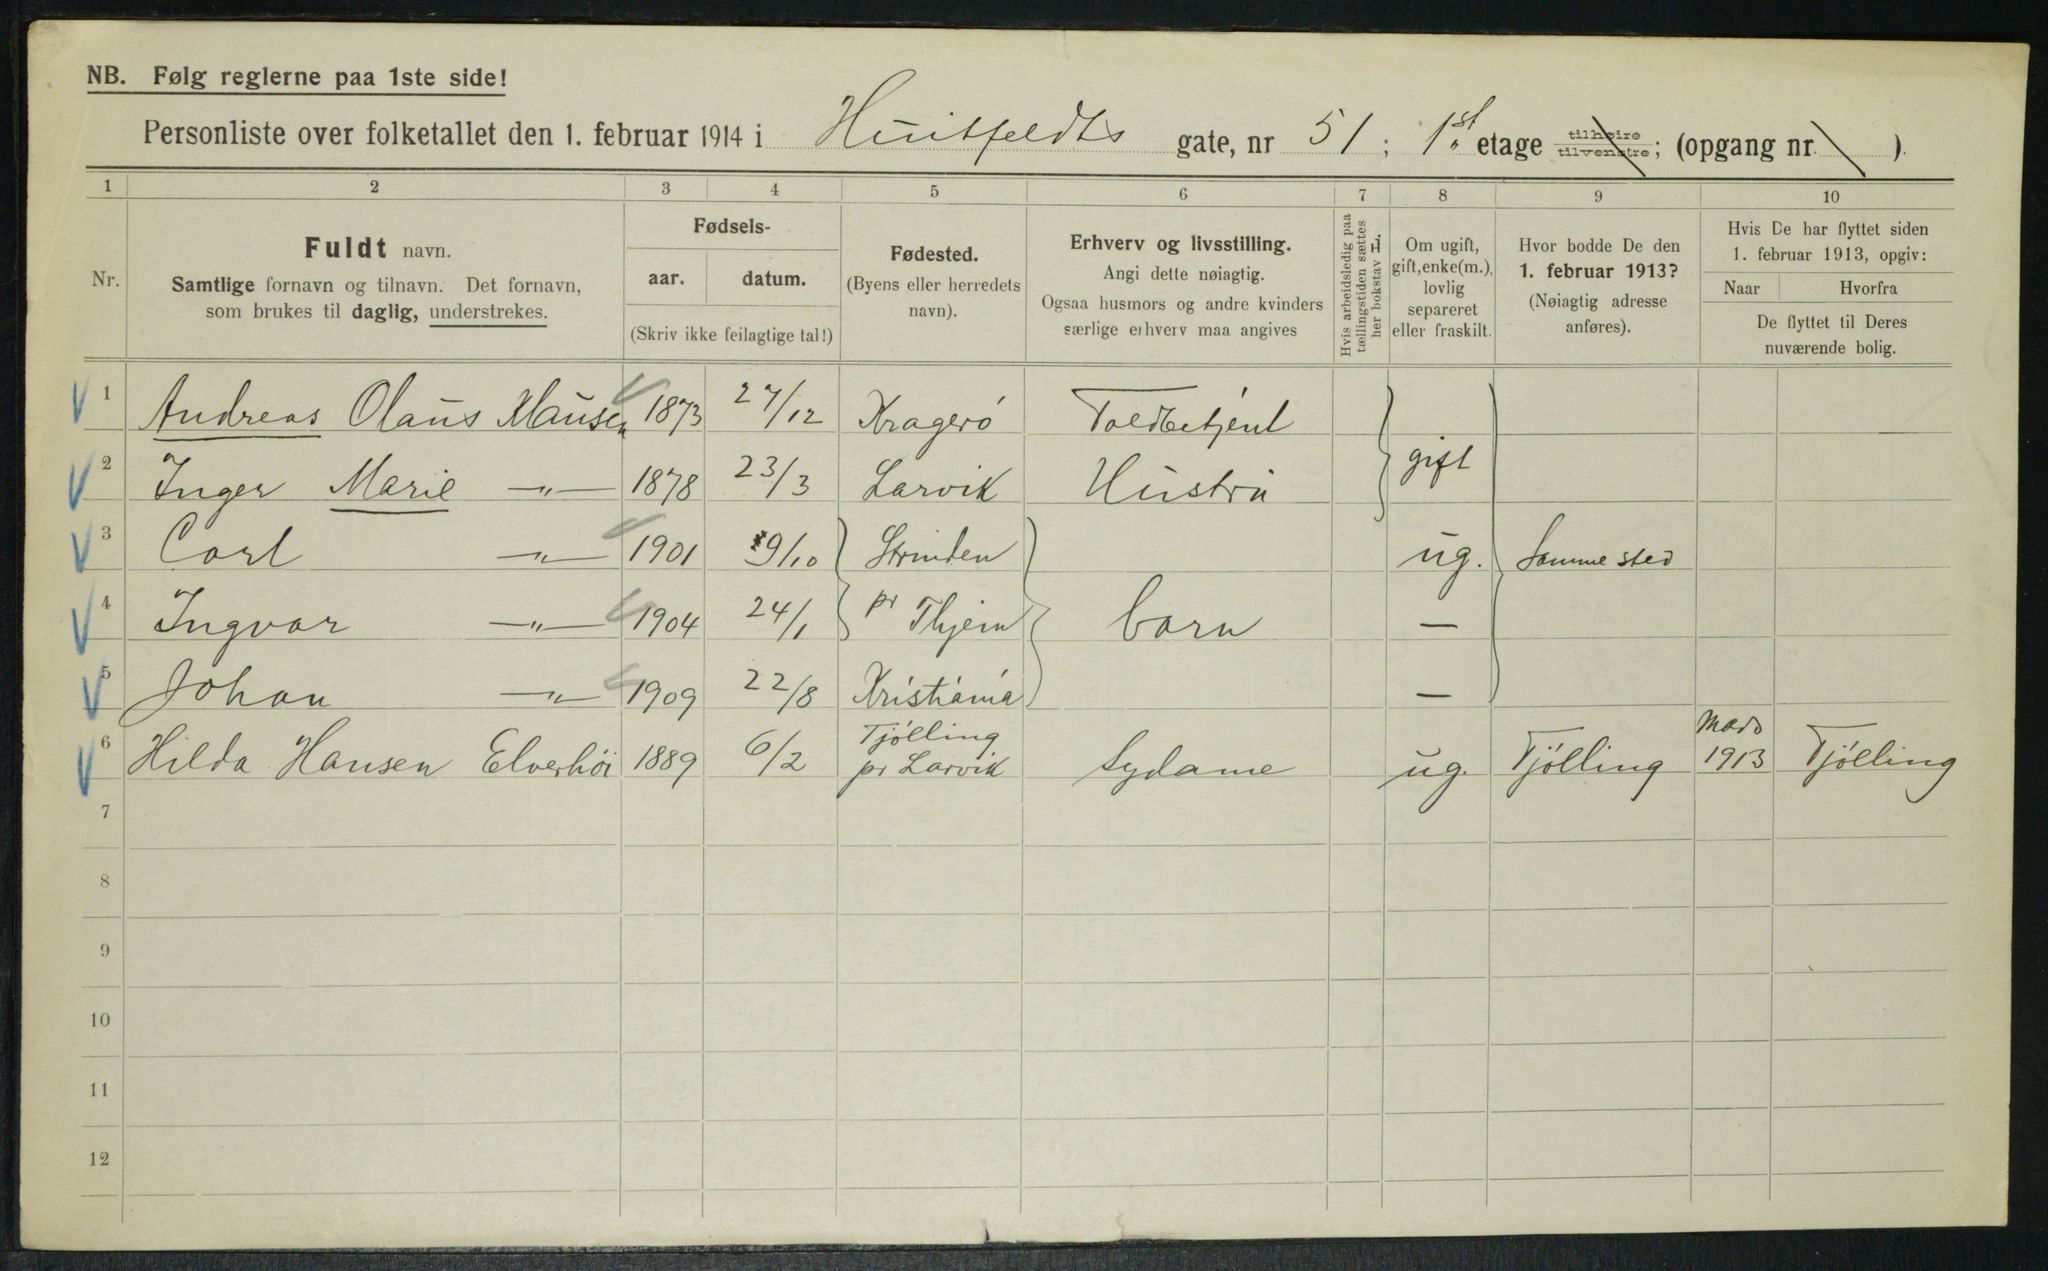 NB. Følg reglerne paa 1ste side!
Personliste over folketallet den 1. februar 1914 i Huitfeldts gate, nr 51; 1st etage tilhøire tilvenstre; (opgang nr. ).
1 2 3 4 5 6 7 8 9 10
Nr.
Fuldt navn.
Samtlige fornavn og tilnavn. Det fornavn,
som brukes til daglig, understrekes.
Fødsels-
aar. datum.
(Skriv ikke feilagtige tal!)
Fødested.
(Byens eller herredets
navn).
Erhverv og livsstilling.
Angi dette nøiagtig.
Ogsaa husmors og andre kvinders
særlige erhverv maa angives
Hvis arbeidsledig paa
tællingstiden sættes
her bokstav L.
Om ugift,
gift, enke(m.),
lovlig
separeret
eller fraskilt.
Hvor bodde De den
1. februar 1913?
(Nøiagtig adresse
anføres).
Hvis De har flyttet siden
1. februar 1913, opgiv:
Naar Hvorfra
De flyttet til Deres
nuværende bolig.
1 Andreas Olaus Klausen 1873 27/12 Kragerö Toldbetjent
gift
2 Inger Marie -„- 1878 23/3 Larvik Hustru
3 Carl -„- 1901 9/10 Strinden ug. Samme sted
4 Ingvar -„- 1904 24/1 pr Thjem barn —
5 Johan -„- 1909 22/8 Kristiania —
6 Hilda Hansen Elverhöi 1889 6/2 Tjölling pr Larvik Sydame ug. Tjölling Mars 1913 Tjölling
7
8
9
10
11
12